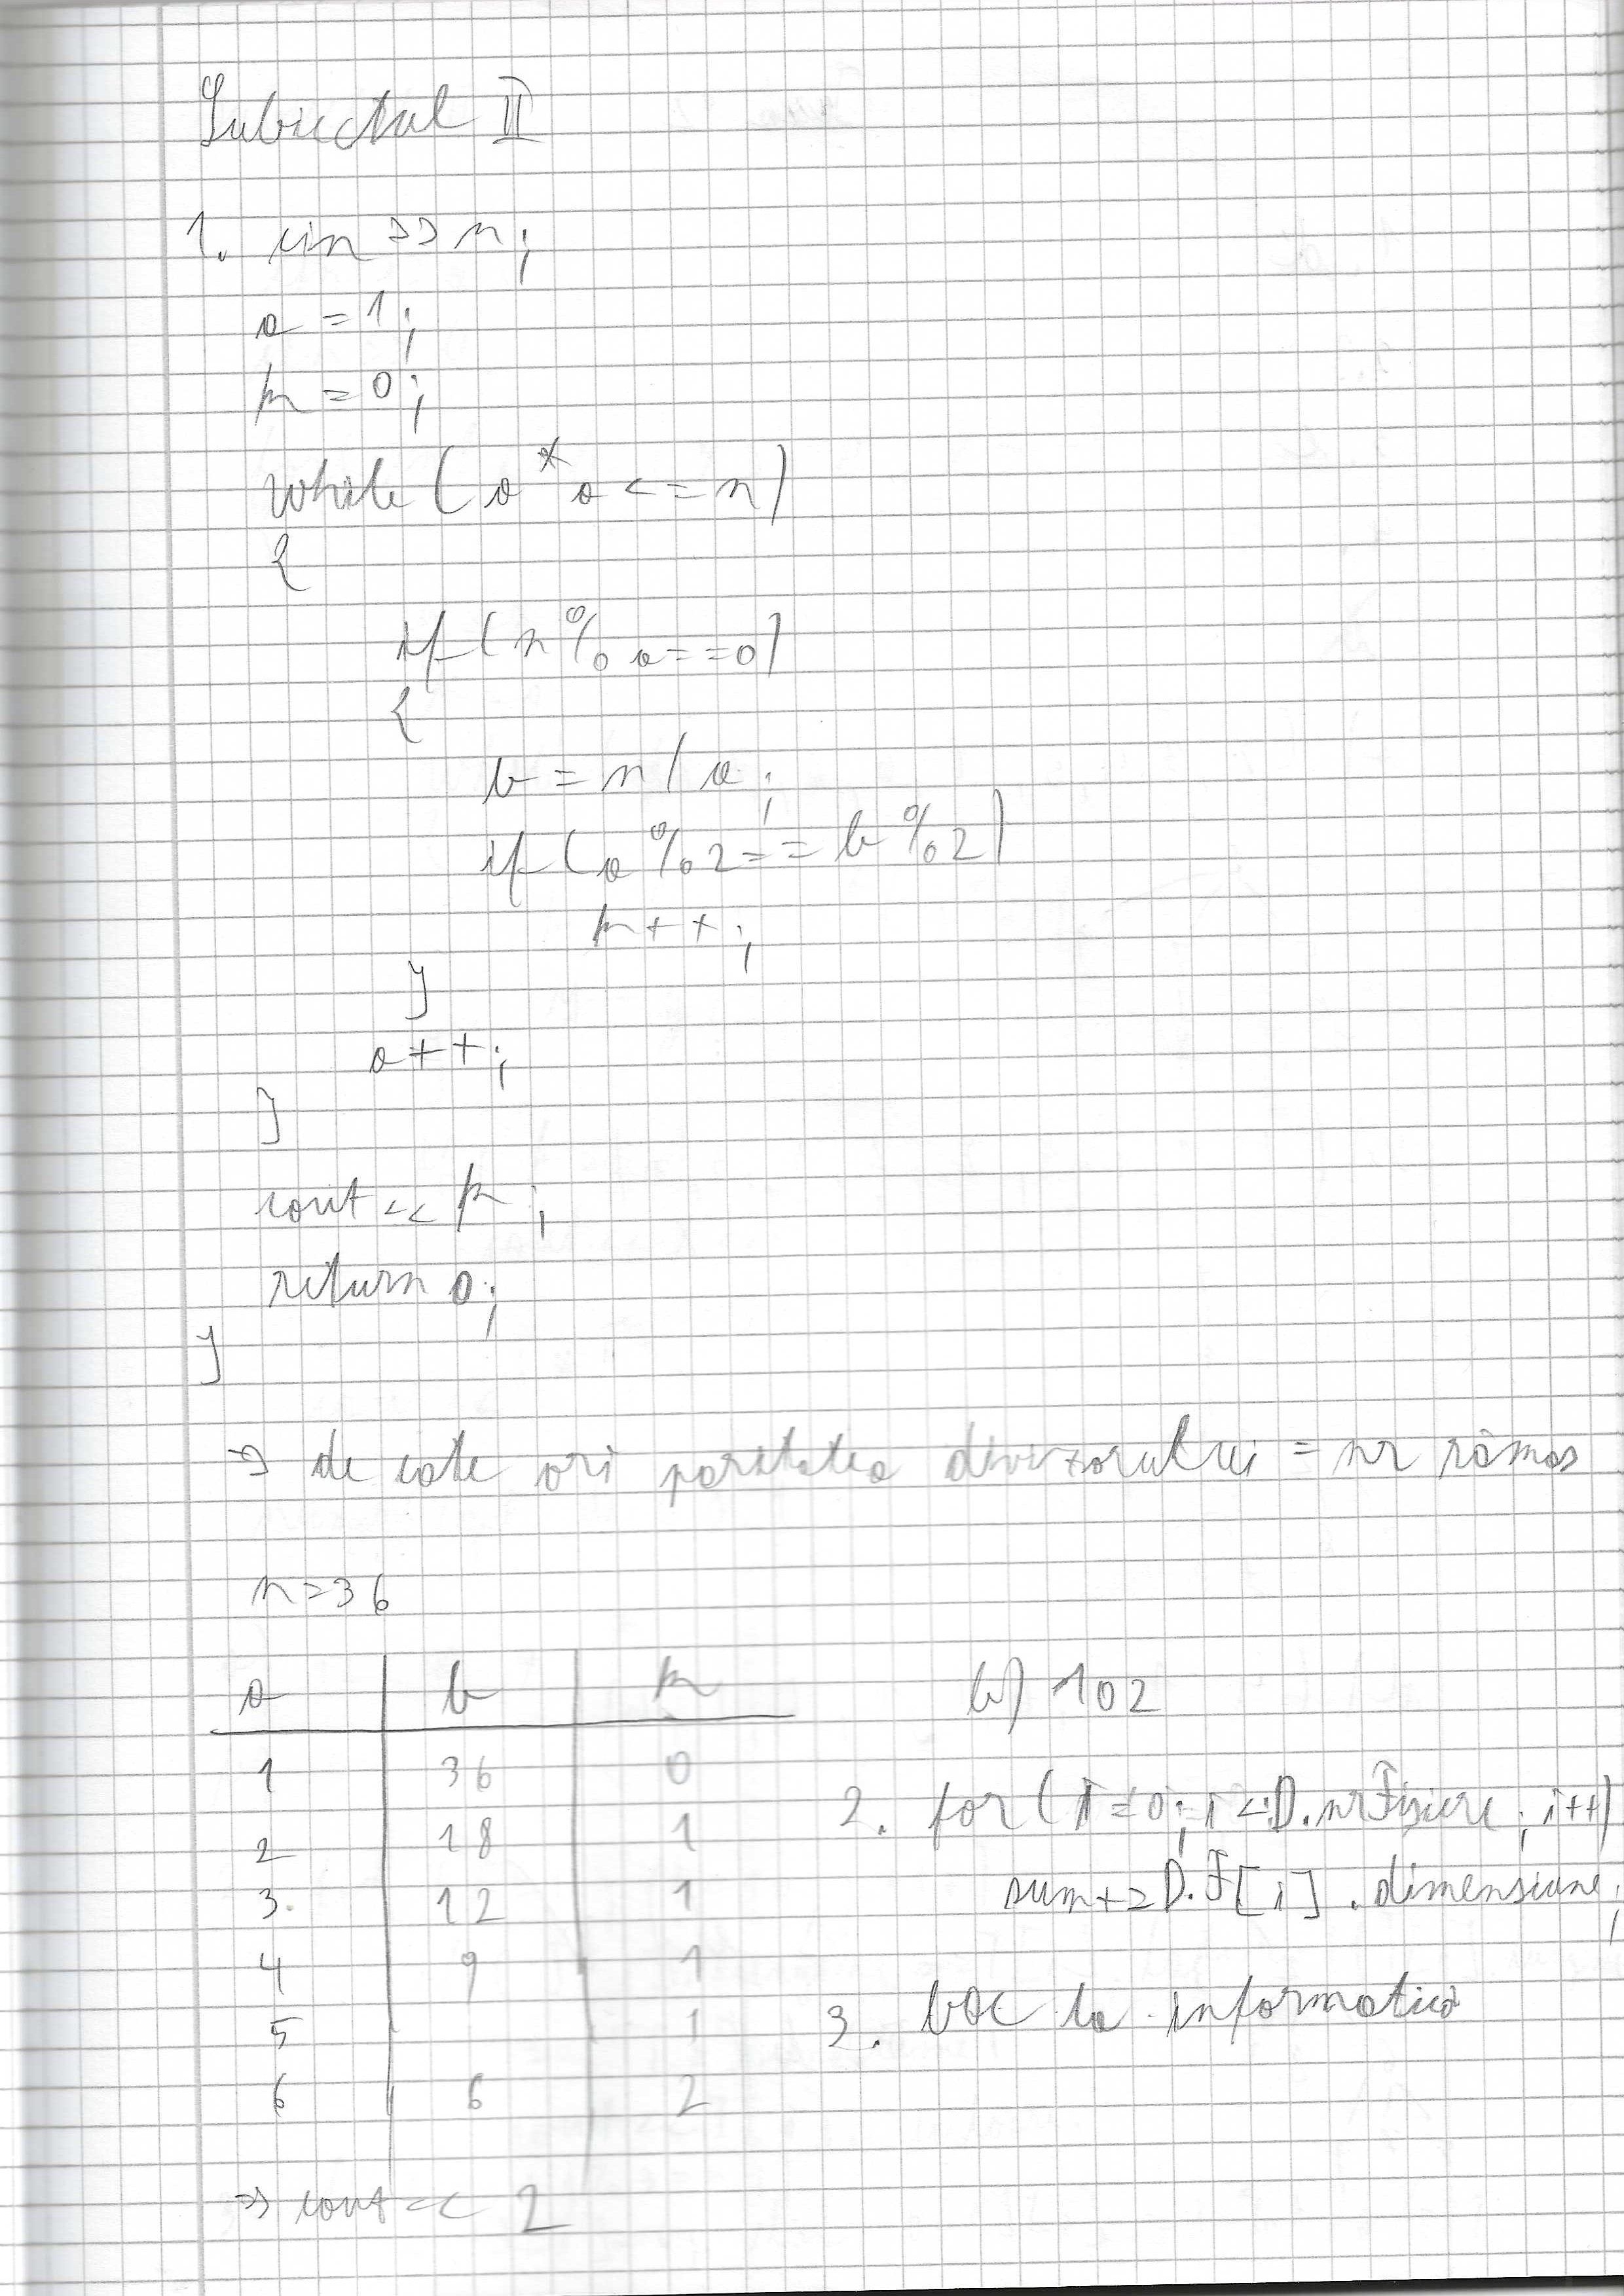 Subiectul II
1. cin >> n;
a = 1;
k = 0;
while (a * a <= n)
{
if (n % a == 0)
{
b = n / a;
if (a % 2 == b % 2)
k++;
}
a++;
}
cout << k;
return 0;
}
=> de cate ori paritatea divizorului = nr rămas
n = 36
a | b | k
1 36 0
2 18 1
3 12 1
4 9 1
5 1
6 6 2
=> cout << 2
b) 102
2. for (i = 0; i < D.nrFisiere; i++)
sum += D.F[i].dimensiune;
3. la informatică